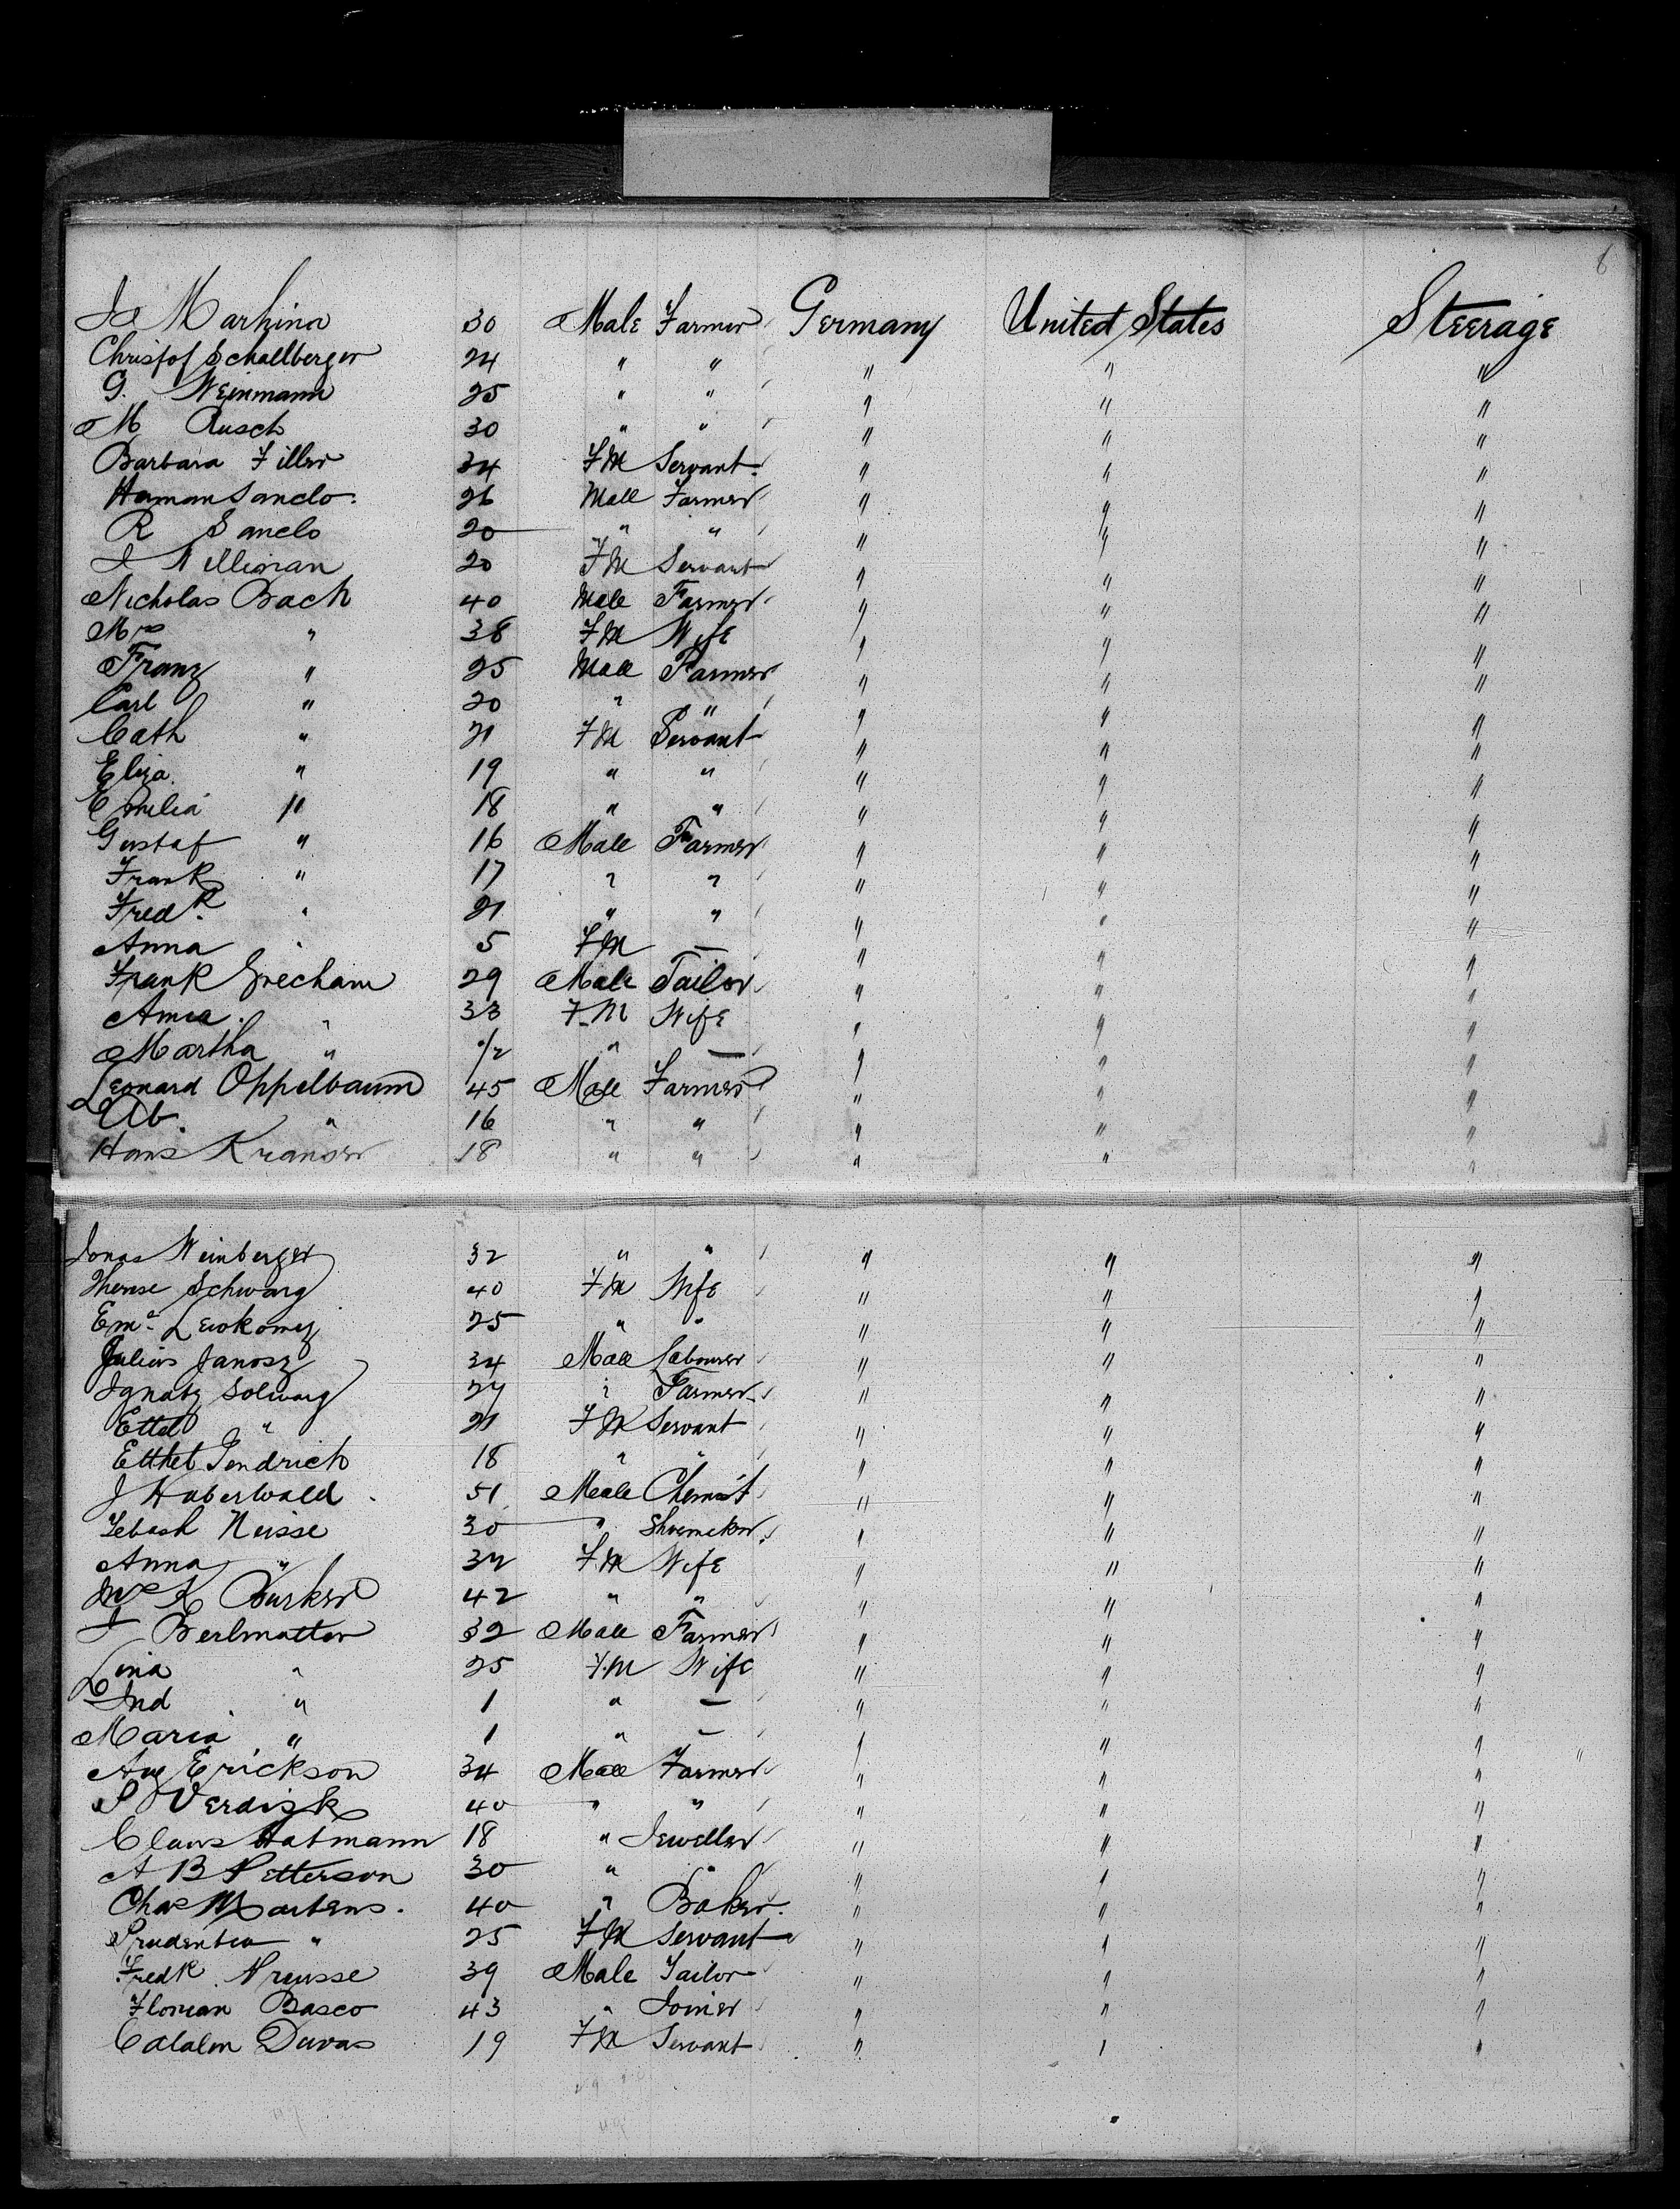 6
Jo Markina 30 Male Farmer Germany United States Steerage
Christof Schallberger 24 " " " " "
G. Weinmann 25 " " " " "
M Rusch 30 " " " " "
Barbara Filler 34 FM Servant " " "
Herman Sanclo 26 Male Farmer " " "
R Sanclo 20 " " " " "
J Williman 20 FM Servant " " "
Nicholas Bach 40 Male Farmer " " "
Mrs " 38 FM Wife " " "
Franz " 25 Male Farmer " " "
Carl " 20 " " " " "
Cath " 21 FM Servant " " "
Eliza " 19 " " " " "
Emilia " 18 " " " " "
Gustaf " 16 Male Farmer " " "
Frank " 17 " " " " "
Fredk " 21 " " " " "
Anna " 5 FM — " " "
Frank Grecham 29 Male Tailor " " "
Anna " 33 F.M Wife " " "
Martha " " — " " "
Leonard Oppelbaum 45 Male Farmer " " "
Ab. " 16 " " " " "
Hans Kranser 18 " " " " "
Jonas Weinberger 32 " " " " "
Therese Schwarz 40 FM Wife " " "
Ema Lewkomez 25 " " " " "
Julius Janosz 34 Male Labourer " " "
Ignatz Solwarz 27 " Farmer " " "
Ettel " 21 FM Servant " " "
Ethel Gendrich 18 " " " " "
J Haberwald 51 Male Chemist " " "
Sebash Neisse 30 " Shoemaker " " "
Anna " 32 FM Wife " " "
Mrs K Burker 42 " " " " "
J Berlmatter 32 Male Farmer " " "
Lina " 25 F.M Wife " " "
Ind " 1 " — " " "
Maria " 1 " — " " "
Aug Erickson 34 Male Farmer " " "
P Verdisk 40 " " " " "
Claus Hatmann 18 " Jeweller " " "
A B Petterson 30 " " " " "
Chas Martens. 40 " Baker. " " "
Prudentia " 25 FM Servant " " "
Fredk Preusse 39 Male Tailor " " "
Florian Basco 43 " Joiner " " "
Catalen Duvas 19 FM Servant " " "